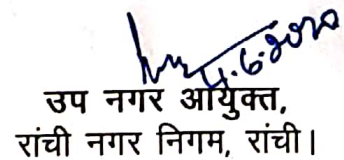 4.6.2020
उप नगर आयुक्त,
रांची नगर निगम, रांची।